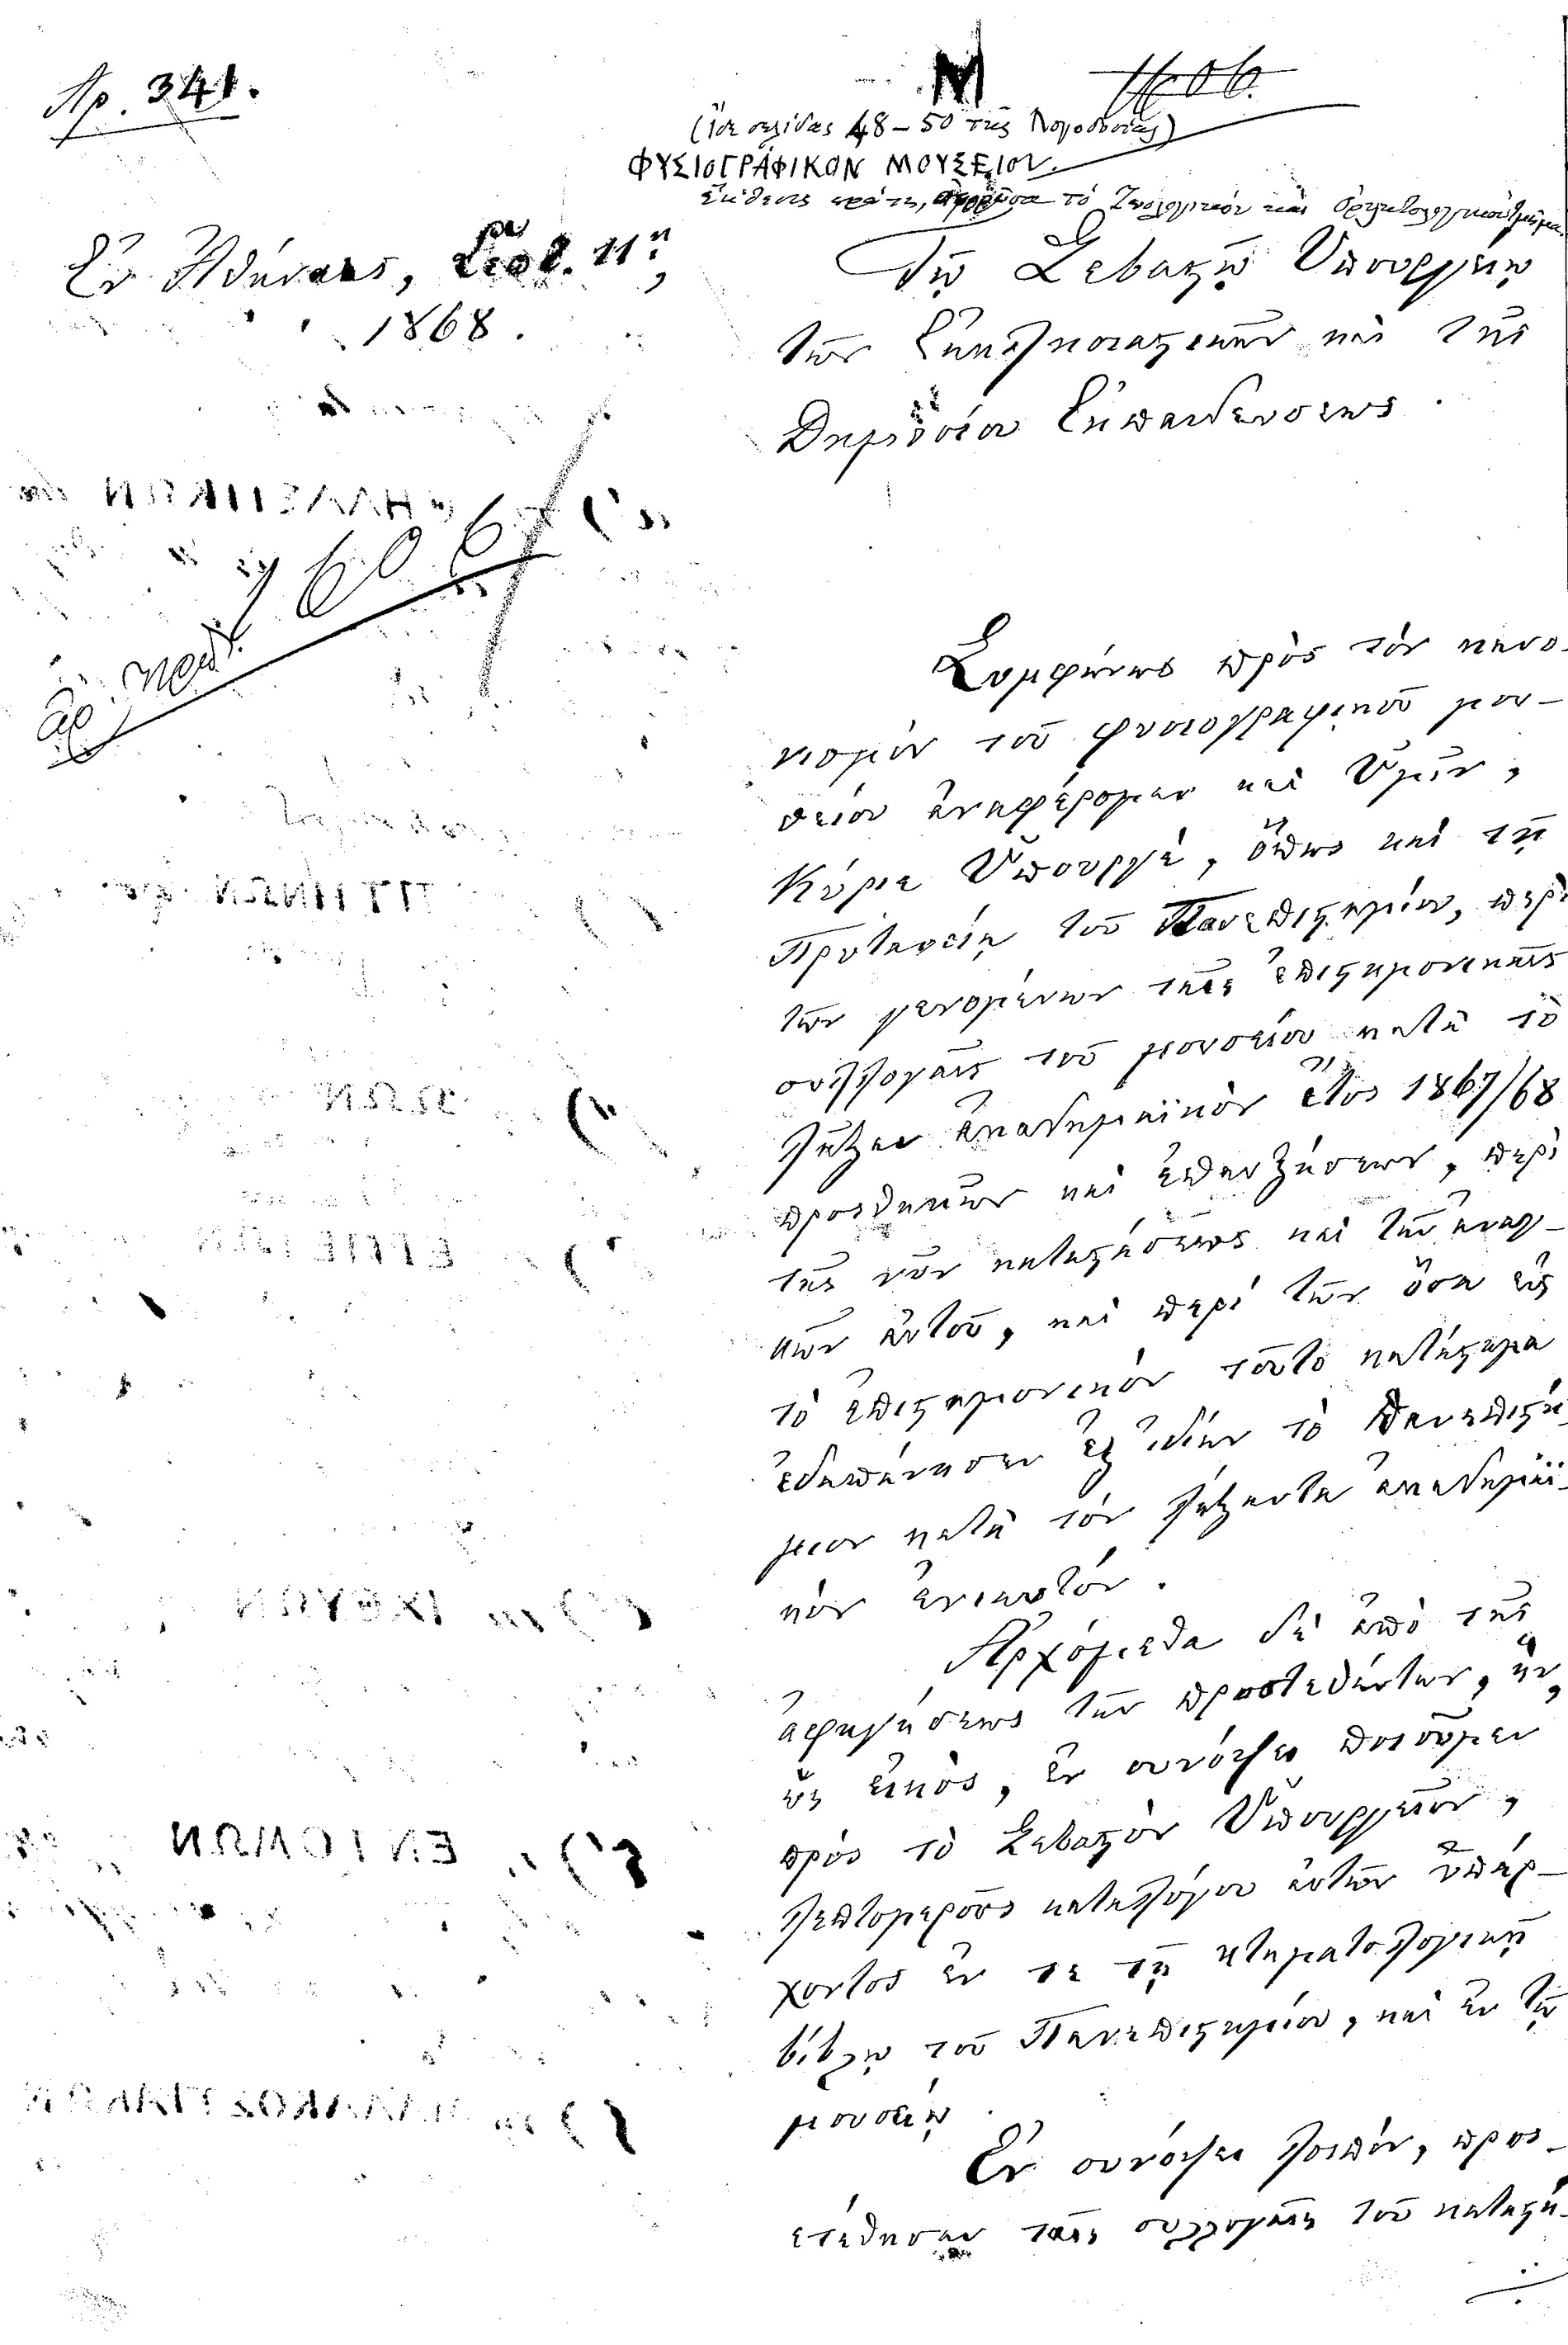 Αρ. 341.
Μ
1606.
(Ἴδε σελίδας 48–50 τῆς Λογοδοσίας)
ΦΥΣΙΟΓΡΑΦΙΚΟΝ ΜΟΥΣΕΙΟΝ.
Ἔκθεσις πρώτη, ἀφορῶσα τὸ Ζωολογικὸν καὶ ὀρυκτολογικὸν τμῆμα.
Ἐν Ἀθήναις, 11ῃ,
1868.
Τῷ Σεβαστῷ Ὑπουργείῳ
τῶν Ἐκκλησιαστικῶν καὶ τῆς
Δημοσίου Ἐκπαιδεύσεως.
ἀρ. πρωτ. 1606
Συμφώνως πρὸς τὸν κανο-
νισμὸν τοῦ φυσιογραφικοῦ μου-
σείου ἀναφέρομεν καὶ Ὑμῖν,
Κύριε Ὑπουργέ, ὅπως καὶ τῇ
Πρυτανείᾳ τοῦ Πανεπιστημίου, περὶ
τῶν γενομένων ταῖς ἐπιστημονικαῖς
συλλογαῖς τοῦ μουσείου κατὰ τὸ
λῆξαν ἀκαδημαϊκὸν ἔτος 1867/68
προσθηκῶν καὶ ἐπαυξήσεων, περὶ
τῆς νῦν καταστάσεως καὶ τῶν ἀναγ-
κῶν αὐτοῦ, καὶ περὶ τῶν ὅσα εἰς
τὸ ἐπιστημονικὸν τοῦτο κατάστημα
ἐδαπάνησεν ἐξ ἰδίων τὸ Πανεπιστή-
μιον κατὰ τὸν λήξαντα ἀκαδημαϊ-
κὸν ἐνιαυτόν.
Ἀρχόμεθα δὲ ἀπὸ τῆς
ἀφηγήσεως τῶν προστεθέντων, ἣν,
ὡς εἰκὸς, ἐν συνόψει ποιοῦμεν
πρὸς τὸ Σεβαστὸν Ὑπουργεῖον,
λεπτομεροῦς καταλόγου αὐτῶν ὑπάρ-
χοντος ἔν τε τῇ κτηματολογικῇ
βίβλῳ τοῦ Πανεπιστημίου, καὶ ἐν τῷ
μουσείῳ.
Ἐν συνόψει λοιπὸν, προσ-
ετέθησαν ταῖς συλλογαῖς τοῦ καταστή-